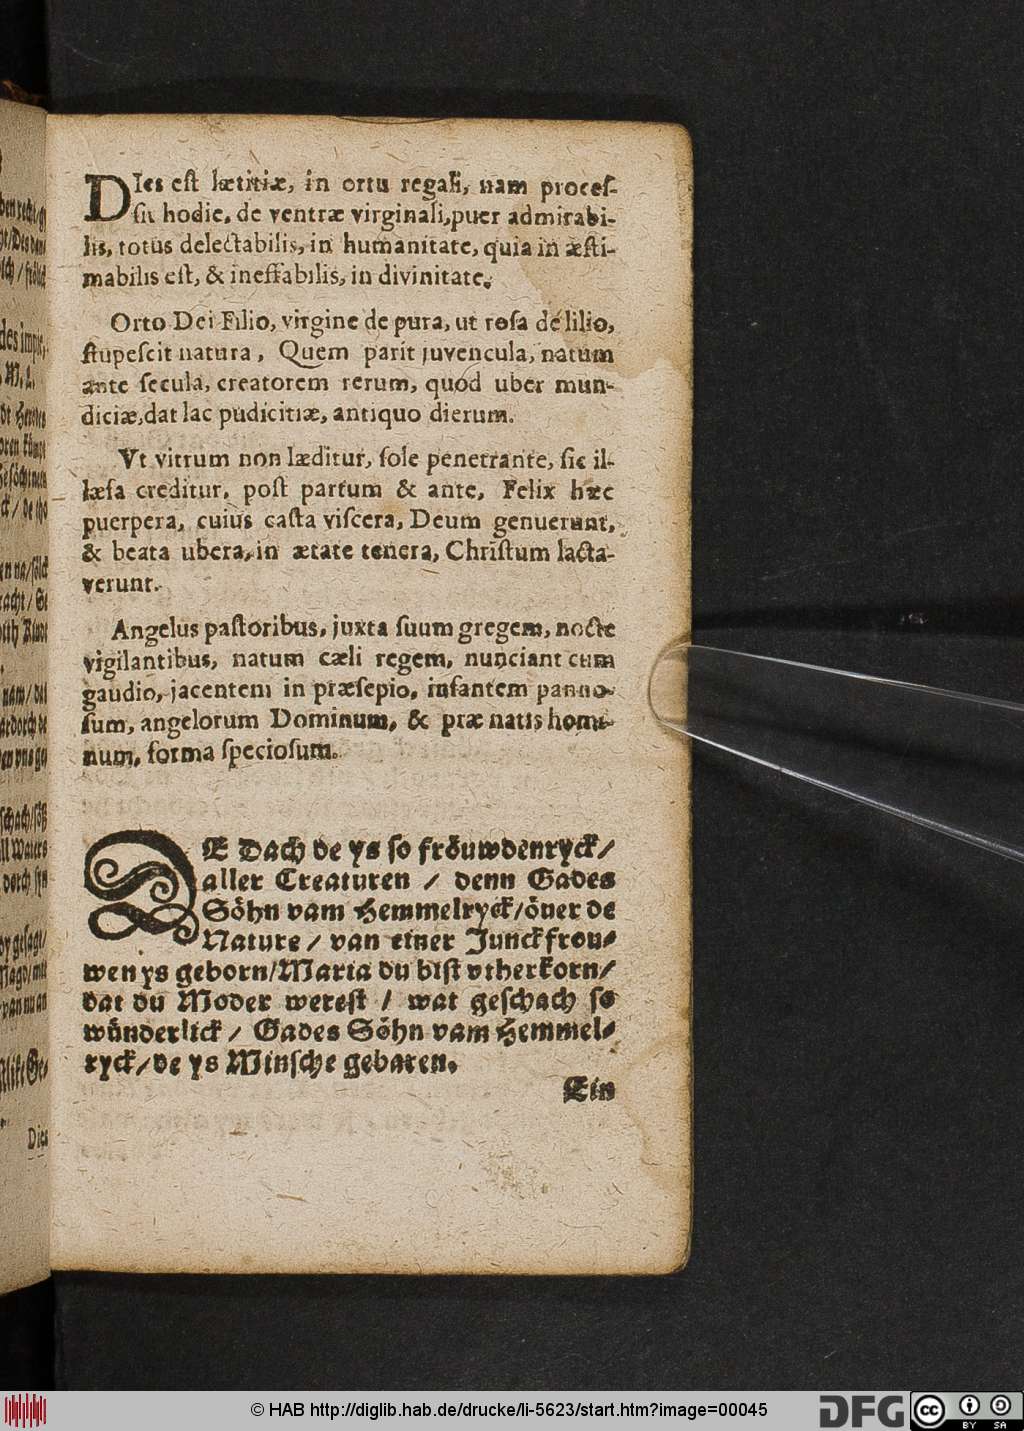 DIes est lætitiæ, in ortu regali, nam proces-
sit hodie, de ventræ virginali, puer admirabi-
lis, totus delectabilis, in humanitate, quia in æsti-
mabilis est, & ineffabilis, in divinitate.
Orto Dei Filio, virgine de pura, ut rosa de lilio,
stupescit natura, Quem parit juvencula, natum
ante secula, creatorem rerum, quod uber mun-
diciæ, dat lac pudicitiæ, antiquo dierum.
Vt vitrum non læditur, sole penetrante, sic il-
læsa creditur, post partum & ante, Felix hæc
puerpera, cuius casta viscera, Deum genuerunt,
& beata ubera, in ætate tenera, Christum lacta-
verunt.
Angelus pastoribus, juxta suum gregem, nocte
vigilantibus, natum cæli regem, nunciant cum
gaudio, jacentem in præsepio, infantem panno-
sum, angelorum Dominum, & præ natis homi-
num, forma speciosum.
DE Dach de ys so fröuwdenryck/
aller Creaturen / denn Gades
Söhn vam Hemmelryck/öuer de
Nature / van einer Junckfrou-
wen ys geborn/Maria du bist vtherkorn/
dat du Moder werest / wat geschach so
wünderlick / Gades Söhn vam Hemmel-
ryck/de ys Minsche gebaren.
Ein
Dies
© HAB http://diglib.hab.de/drucke/li-5623/start.htm?image=00045
DFG
cc
BY SA